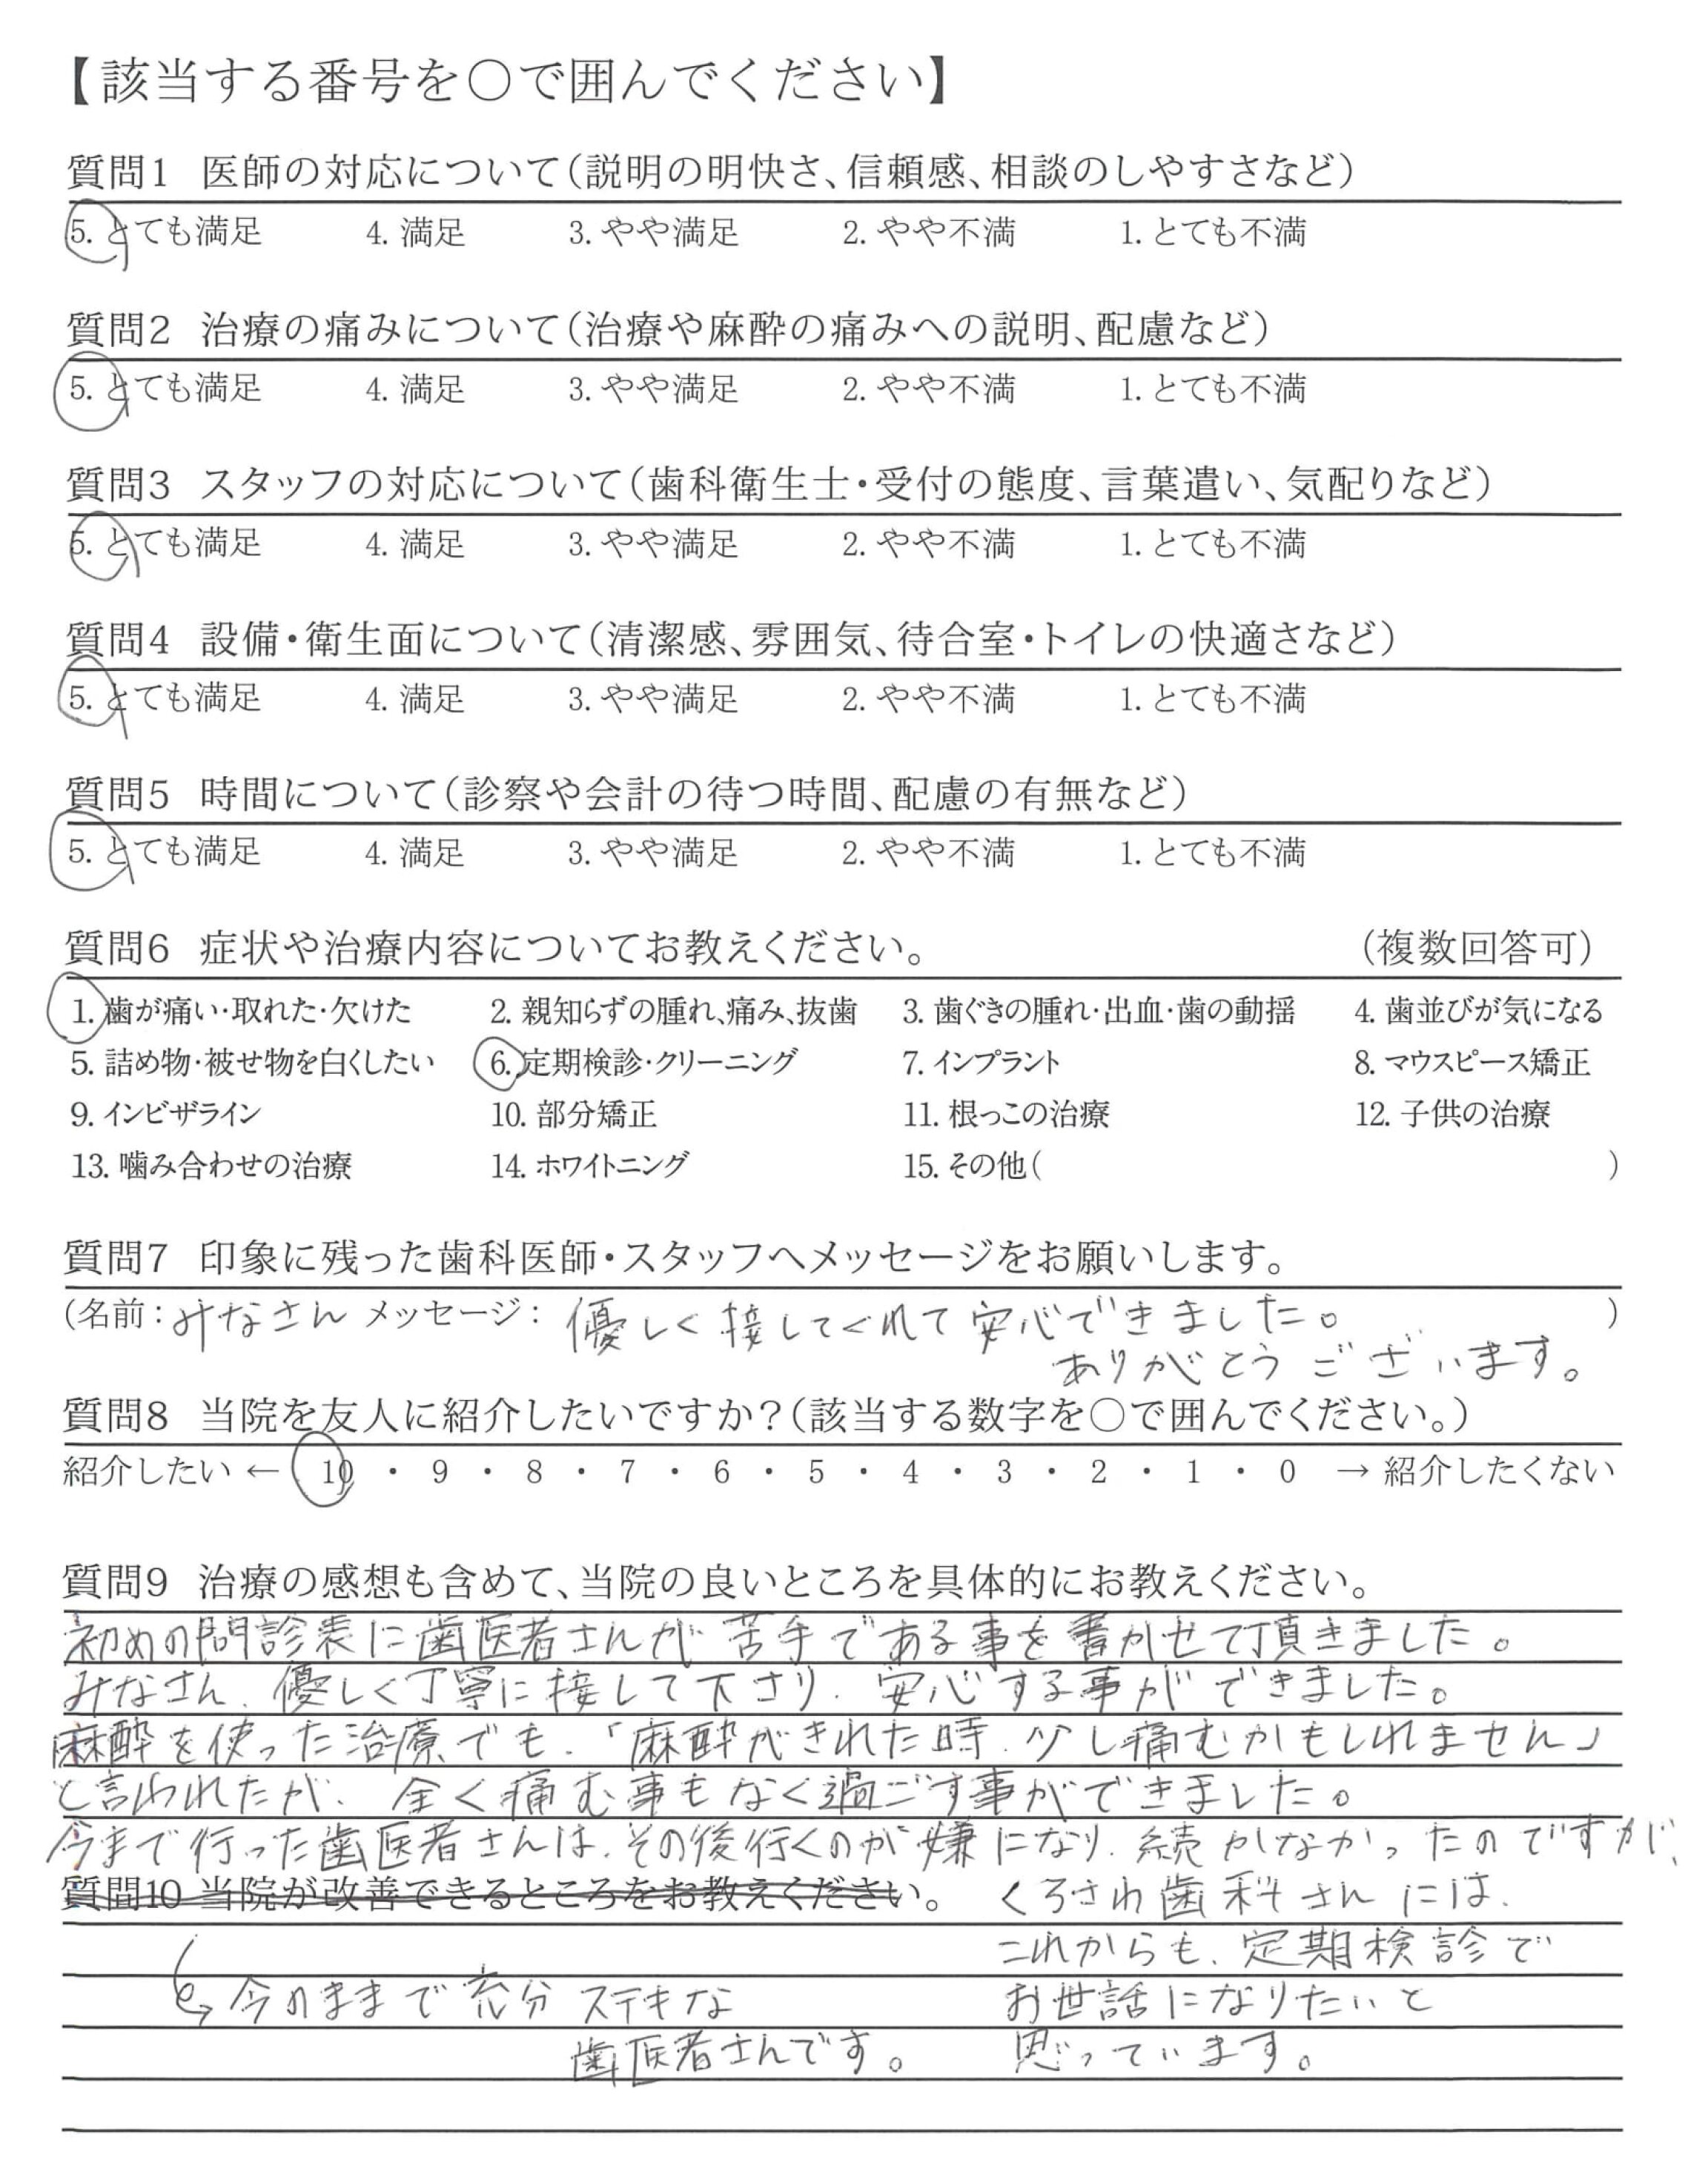 【該当する番号を〇で囲んでください】
質問1 医師の対応について(説明の明快さ、信頼感、相談のしやすさなど)
5. とても満足 4. 満足 3. やや満足 2. やや不満 1. とても不満
質問2 治療の痛みについて(治療や麻酔の痛みへの説明、配慮など)
5. とても満足 4. 満足 3. やや満足 2. やや不満 1. とても不満
質問3 スタッフの対応について(歯科衛生士・受付の態度、言葉遣い、気配りなど)
5. とても満足 4. 満足 3. やや満足 2. やや不満 1. とても不満
質問4 設備・衛生面について(清潔感、雰囲気、待合室・トイレの快適さなど)
5. とても満足 4. 満足 3. やや満足 2. やや不満 1. とても不満
質問5 時間について(診察や会計の待つ時間、配慮の有無など)
5. とても満足 4. 満足 3. やや満足 2. やや不満 1. とても不満
質問6 症状や治療内容についてお教えください。 (複数回答可)
1. 歯が痛い・取れた・欠けた 2. 親知らずの腫れ、痛み、抜歯 3. 歯ぐきの腫れ・出血・歯の動揺 4. 歯並びが気になる
5. 詰め物・被せ物を白くしたい 6. 定期検診・クリーニング 7. インプラント 8. マウスピース矯正
9. インビザライン 10. 部分矯正 11. 根っこの治療 12. 子供の治療
13. 噛み合わせの治療 14. ホワイトニング 15. その他( )
質問7 印象に残った歯科医師・スタッフへメッセージをお願いします。
(名前：みなさん メッセージ： 優しく接してくれて安心できました。 )
ありがとうございます。
質問8 当院を友人に紹介したいですか？(該当する数字を〇で囲んでください。)
紹介したい ← 10 ・ 9 ・ 8 ・ 7 ・ 6 ・ 5 ・ 4 ・ 3 ・ 2 ・ 1 ・ 0 → 紹介したくない
質問9 治療の感想も含めて、当院の良いところを具体的にお教えください。
初めの問診表に歯医者さんが苦手である事を書かせて頂きました。
みなさん、優しく丁寧に接して下さり、安心する事ができました。
麻酔を使った治療でも、「麻酔がきれた時、少し痛むかもしれません」
と言われたが、全く痛む事もなく過ごす事ができました。
今まで行った歯医者さんは、その後行くのが嫌になり、続かなかったのですが、
質問10 当院が改善できるところをお教えください。 くろさわ歯科さんには、
これからも、定期検診で
今のままで充分ステキな お世話になりたいと
歯医者さんです。 思っています。